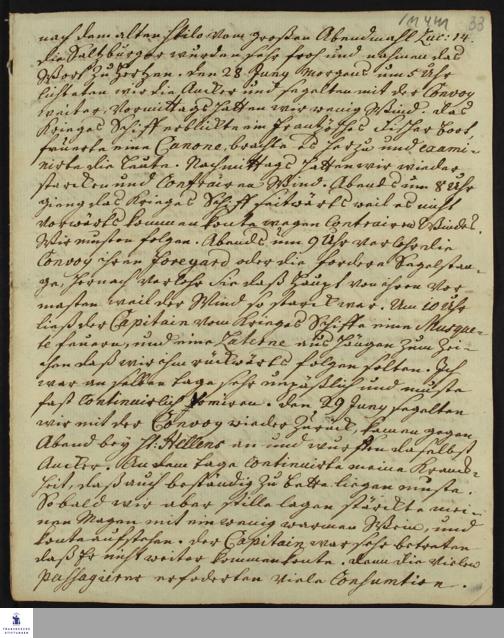 33
nach dem alten Stilo vom großen Abendmahl Luc: 14.
die Saltzburger wurden sehr froh und nahmen das
Wort zu Hertzen. den 28 Juny Morgens um 5 Uhr
lichteten wir die Ancker und segelten mit der Convoy
weiter, Vormittags hatten wir wenig Wind. das
Krieges Schiff erblickte ein Frantzösches Fischer boot,
feuerte eine Canone, brachte es herzu und exami-
nirte die Leute. Nachmittags hatten wir wieder
starcken und Contrairen Wind. Abends um 8 Uhr
gieng das Krieges Schiff seitwärts weil es nicht
vorwärts kommen konte wegen Contrairen Windes.
Wir musten folgen. Abends um 9 Uhr verlohr die
Convoy ihren Foregard oder die fordere Segelstan-
ge, hernach verlohr sie daß Haupt von ihren Vor-
masten weil der Wind so starck war. Um 10 Uhr
ließ der Capitain vom Krieges Schiffe einen Musque-
te feuern, und eine Laterne aus hängen zum Zei-
chen daß wir ihm rückwärts folgen solten. Ich
war an selben tage sehr unpäßlich und muste
fast Continuirlich vomiren. den 29 Juny segelten
wir mit der Convoy wieder zurück, kamen gegen
Abend bey St. Hellens an und wurffen daselbst
Ancker. An dem tage Continuirte meine Kranck-
heit, daß auch beständig zu bette liegen muste.
Sobald wir aber stille lagen stärckte mei-
nen Magen mit ein wenig warmen Wein, und
konte aufstehen. Der Capitain war sehr betreten
daß Er nicht weiter kommen konte. denn die vielen
passagierer erforderten viele Consumtion.
FRANCKESCHE
STIFTUNGEN